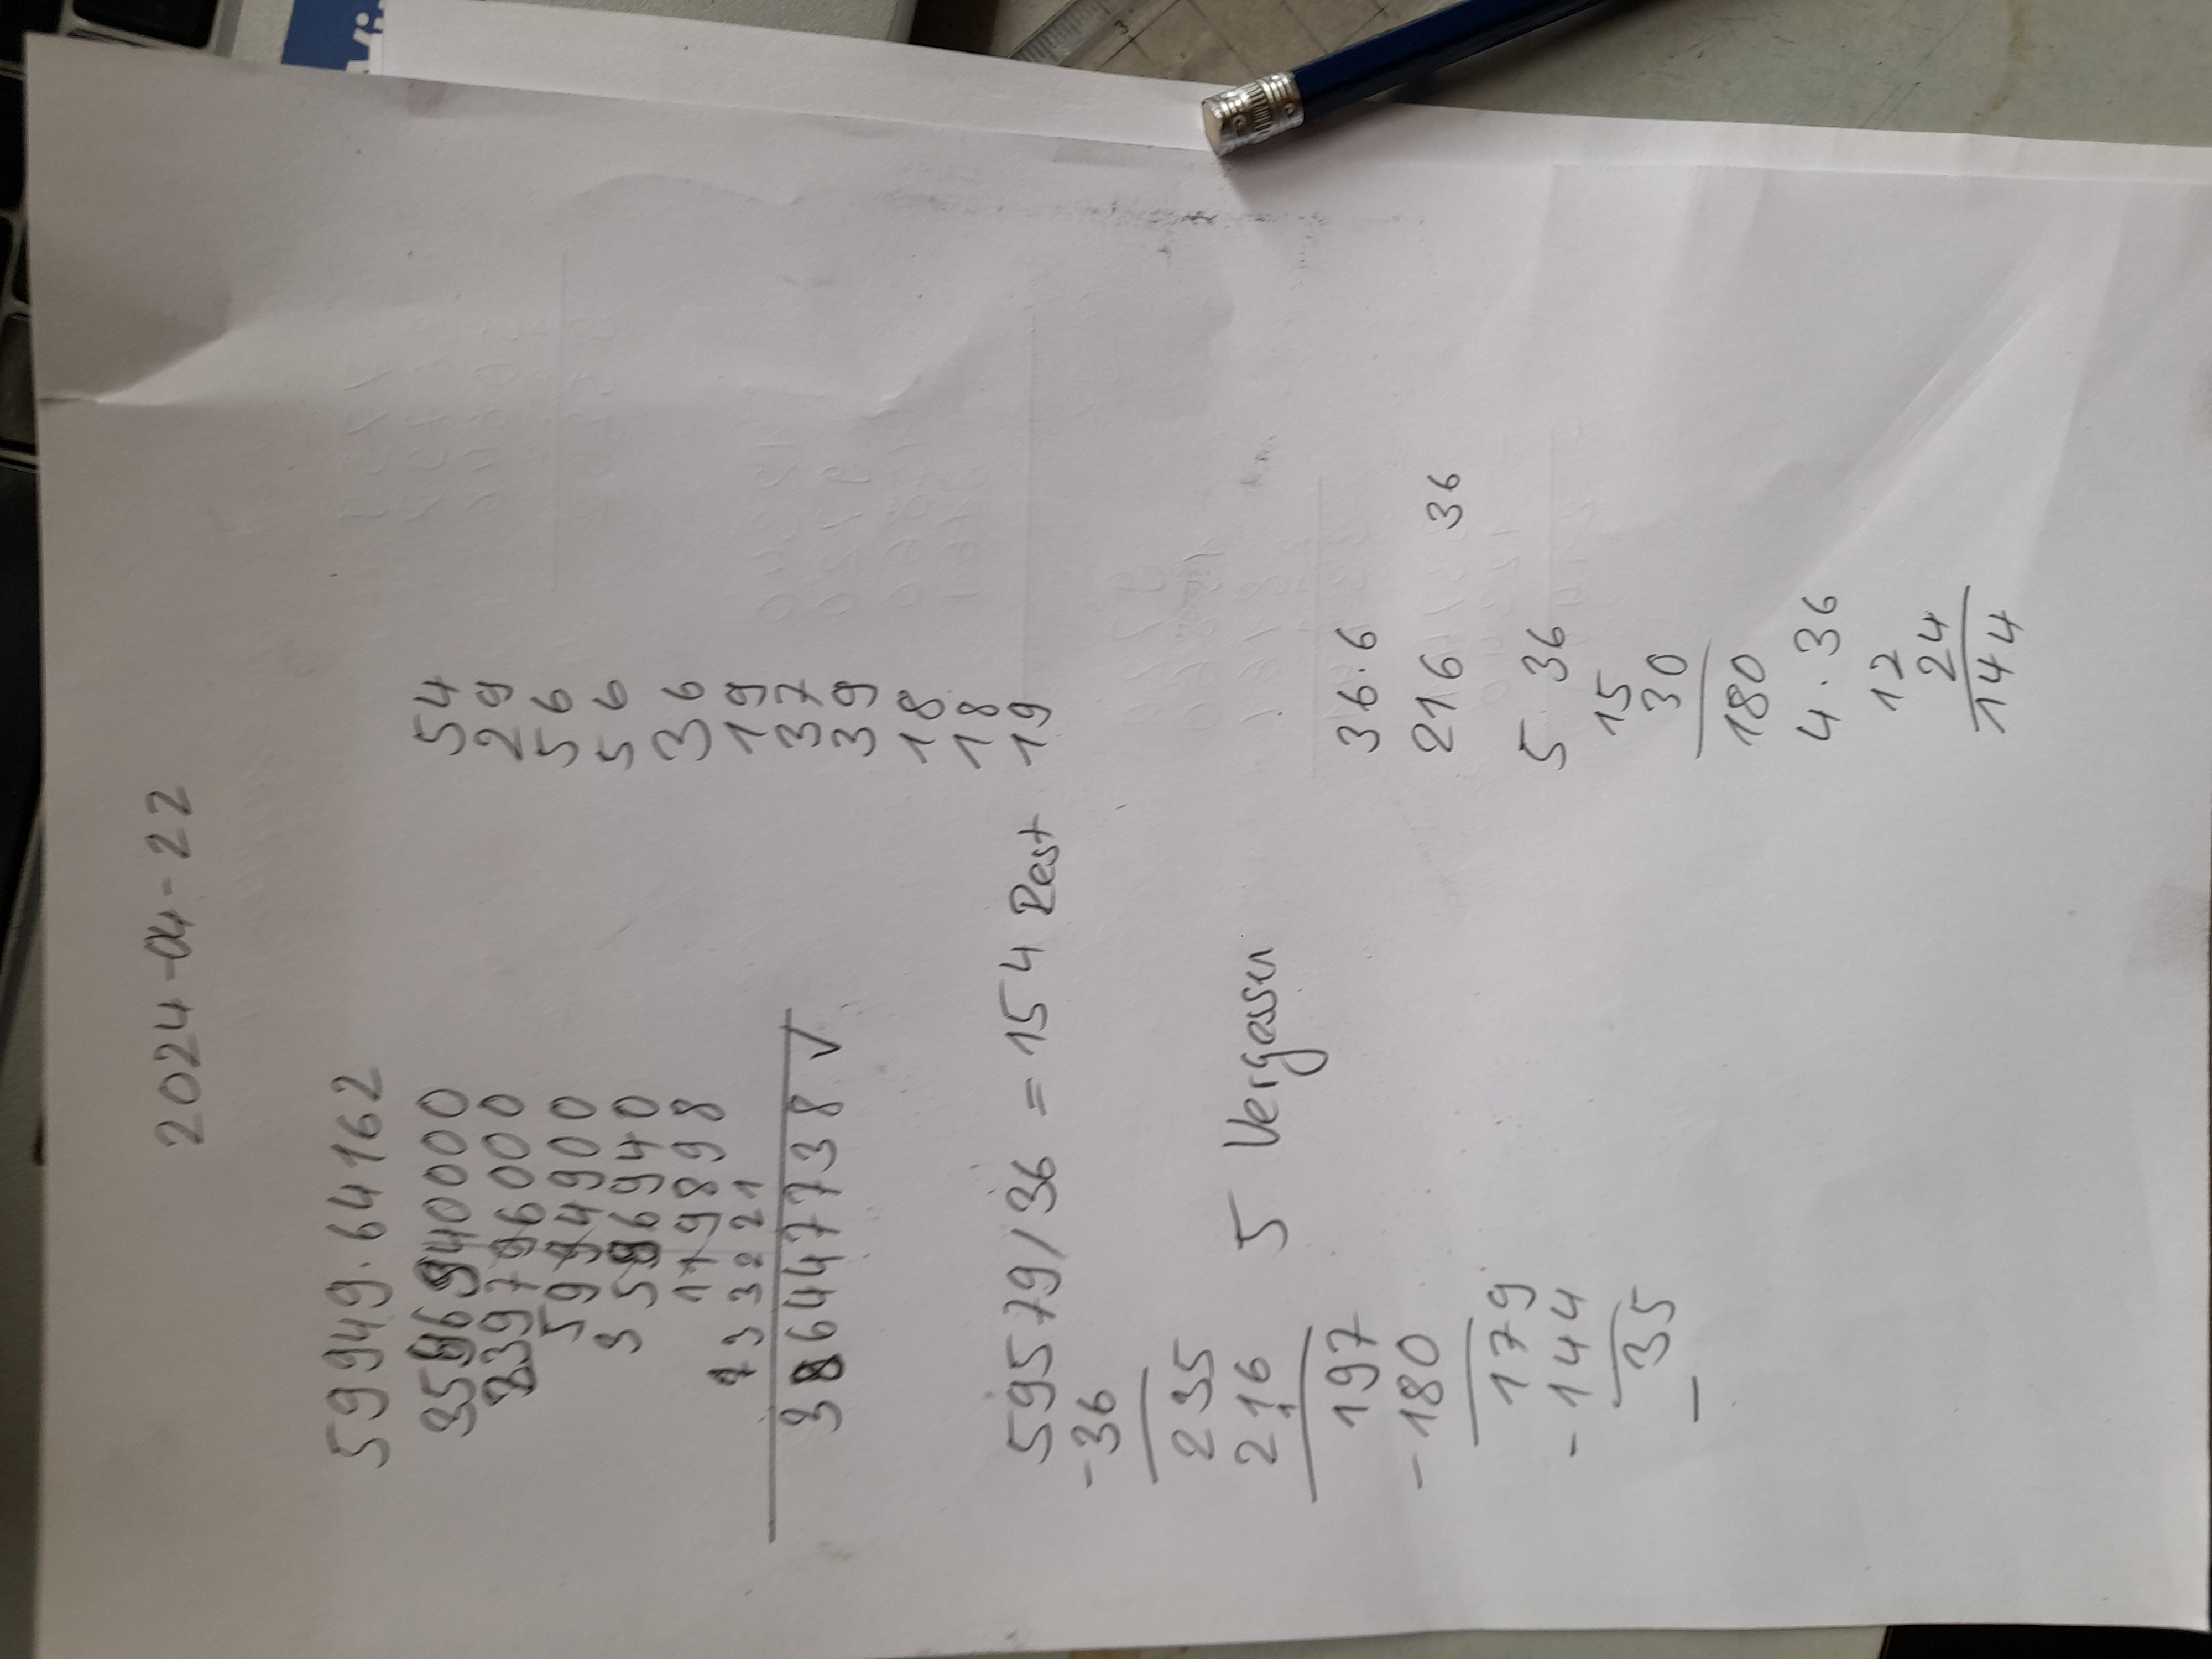 2024-04-22
59949.64162
3596940000
239796000
5994900
3596940
119898
1 3 3 2 2 1
3864477738 ✓
54
29
56
56
36
19
37
39
18
18
19
59579/36 = 154 Rest
-36
235
216
197
-180
179
-144
35
5 Vergessen
36.6
216 36
5 36
15
30
180
4.36
12
24
144